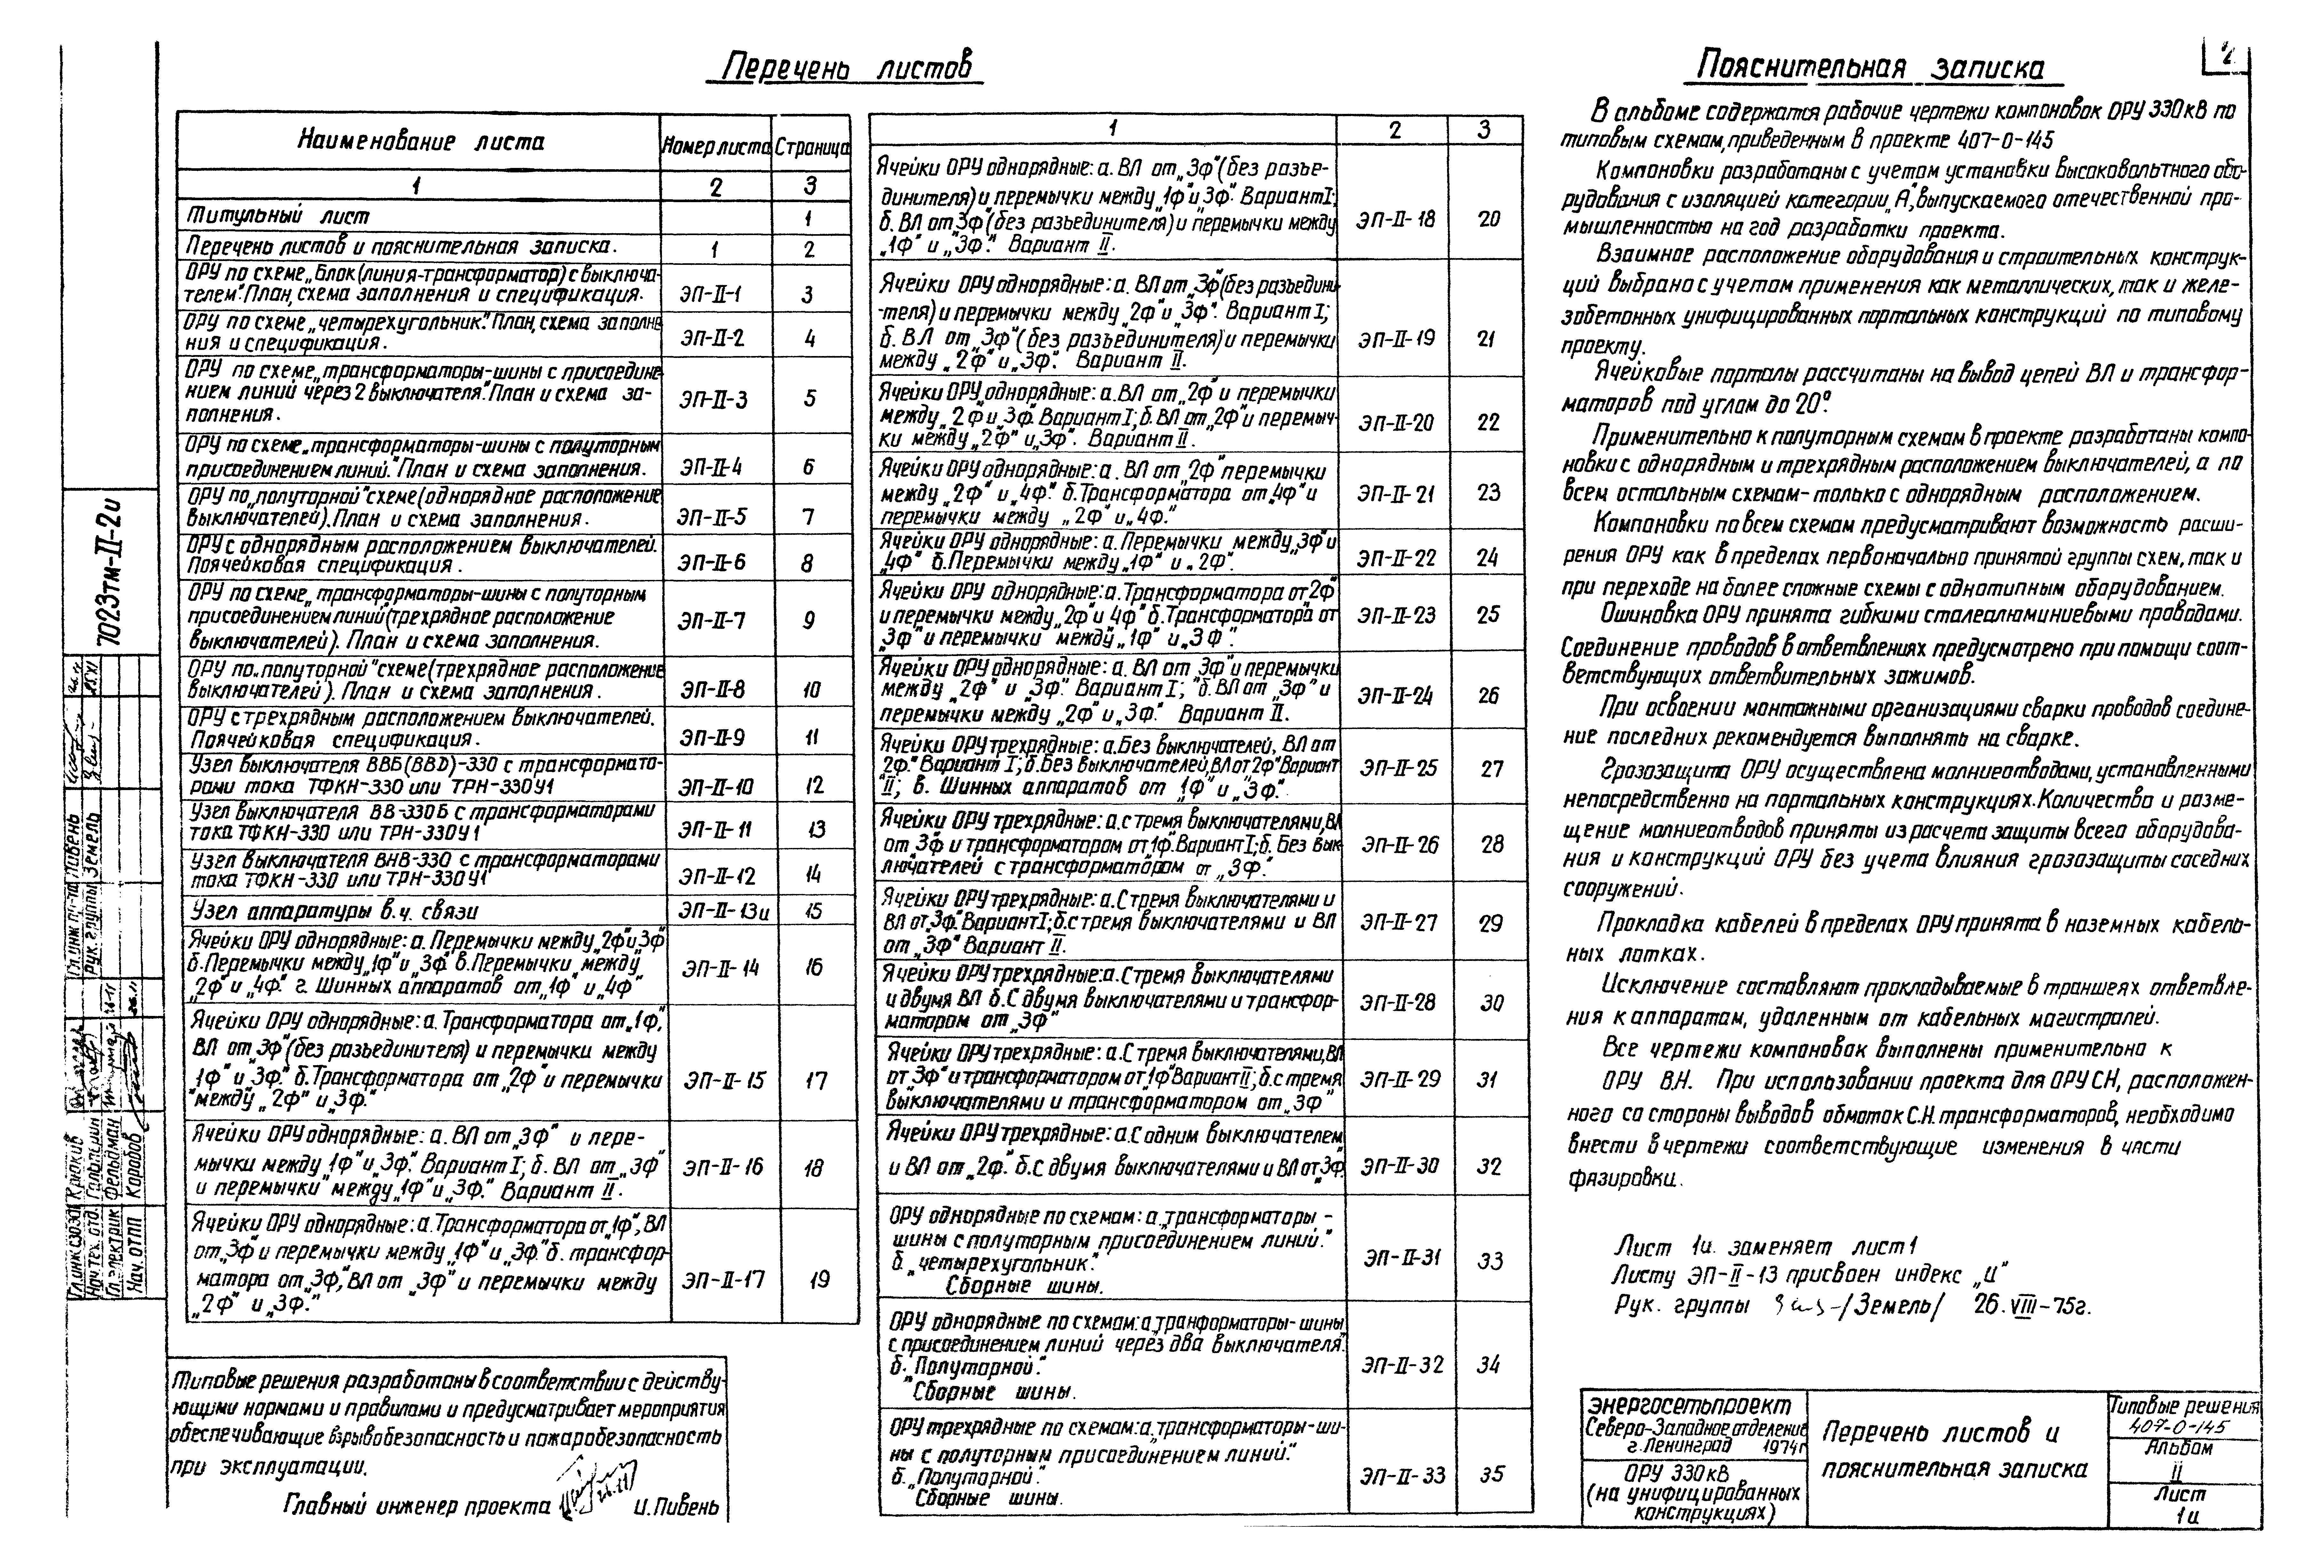 Перечень листов
Наименование листа | Номер листа | Страница
1 | 2 | 3
Титульный лист | | 1
Перечень листов и пояснительная записка. | 1 | 2
ОРУ по схеме „Блок (линия-трансформатор) с выключа-
телем". План, схема заполнения и спецификация. | ЭП-II-1 | 3
ОРУ по схеме „четырехугольник". План, схема заполне
ния и спецификация. | ЭП-II-2 | 4
ОРУ по схеме „трансформаторы-шины с присоедине
нием линий через 2 выключателя". План и схема за-
полнения. | ЭП-II-3 | 5
ОРУ по схеме „трансформаторы-шины с полуторным
присоединением линий." План и схема заполнения. | ЭП-II-4 | 6
ОРУ по „полуторной" схеме (однорядное расположение
выключателей). План и схема заполнения. | ЭП-II-5 | 7
ОРУ с однорядным расположением выключателей.
Поячейковая спецификация. | ЭП-II-6 | 8
ОРУ по схеме „трансформаторы-шины с полуторным
присоединением линий (трехрядное расположение
выключателей). План и схема заполнения. | ЭП-II-7 | 9
ОРУ по „полуторной" схеме (трехрядное расположение
выключателей). План и схема заполнения. | ЭП-II-8 | 10
ОРУ с трехрядным расположением выключателей.
Поячейковая спецификация. | ЭП-II-9 | 11
Узел выключателя ВВБ (ВВD)-330 с трансформато-
рами тока ТФКН-330 или ТРН-330У1 | ЭП-II-10 | 12
Узел выключателя ВВ-330Б с трансформаторами
тока ТФКН-330 или ТРН-330У1 | ЭП-II-11 | 13
Узел выключателя ВНВ-330 с трансформаторами
тока ТФКН-330 или ТРН-330У1 | ЭП-II-12 | 14
Узел аппаратуры в.ч. связи | ЭП-II-13и | 15
Ячейки ОРУ однорядные: а. Перемычки между „2ф" и „3ф"
б. Перемычки между „1ф" и „3ф" в. Перемычки между
„2ф" и „4ф." г. Шинных аппаратов от „1ф" и „4ф" | ЭП-II-14 | 16
Ячейки ОРУ однорядные: а. Трансформатора от „1ф",
ВЛ от „3ф" (без разъединителя) и перемычки между
„1ф" и „3ф." б. Трансформатора от „2ф" и перемычки
между „2ф" и „3ф." | ЭП-II-15 | 17
Ячейки ОРУ однорядные: а. ВЛ от „3ф" и пере-
мычки между „1ф" и „3ф". Вариант I; б. ВЛ от „3ф"
и перемычки между „1ф" и „3ф." Вариант II. | ЭП-II-16 | 18
Ячейки ОРУ однорядные: а. Трансформатора от „1ф", ВЛ
от „3ф" и перемычки между „1ф" и „3ф" б. трансфор-
матора от „3ф", ВЛ от „3ф" и перемычки между
„2ф" и „3ф." | ЭП-II-17 | 19
1 | 2 | 3
Ячейки ОРУ однорядные: а. ВЛ от „3ф" (без разъе-
динителя) и перемычки между „1ф" и „3ф". Вариант I;
б. ВЛ от „3ф" (без разъединителя) и перемычки между
„1ф" и „3ф." Вариант II. | ЭП-II-18 | 20
Ячейки ОРУ однорядные: а. ВЛ от „3ф" (без разъедини
-теля) и перемычки между „2ф" и „3ф". Вариант I;
б. ВЛ от „3ф" (без разъединителя) и перемычки
между „2ф" и „3ф." Вариант II. | ЭП-II-19 | 21
Ячейки ОРУ однорядные: а. ВЛ от „2ф" и перемычки
между „2ф" и „3ф". Вариант I; б. ВЛ от „2ф" и перемыч-
ки между „2ф" и „3ф". Вариант II. | ЭП-II-20 | 22
Ячейки ОРУ однорядные: а. ВЛ от „2ф" перемычки
между „2ф" и „4ф." б. Трансформатора от „4ф" и
перемычки между „2ф" и „4ф." | ЭП-II-21 | 23
Ячейки ОРУ однорядные: а. Перемычки между „3ф" и
„4ф" б. Перемычки между „1ф" и „2ф". | ЭП-II-22 | 24
Ячейки ОРУ однорядные: а. Трансформатора от „2ф"
и перемычки между „2ф" и 4ф" б. Трансформатора от
„3ф" и перемычки между „1ф" и „3ф". | ЭП-II-23 | 25
Ячейки ОРУ однорядные: а. ВЛ от „3ф" и перемычки
между „2ф" и „3ф." Вариант I; б. ВЛ от „3ф" и
перемычки между „2ф" и „3ф." Вариант II. | ЭП-II-24 | 26
Ячейки ОРУ трехрядные: а. Без выключателей, ВЛ от
„2ф." Вариант I; б. Без выключателей, ВЛ от „2ф" Вариант
II; в. Шинных аппаратов от „1ф" и „3ф." | ЭП-II-25 | 27
Ячейки ОРУ трехрядные: а. с тремя выключателями, ВЛ
от „3ф и трансформатором от „1ф". Вариант I; б. Без вык
лючателей с трансформатором от „3ф". | ЭП-II-26 | 28
Ячейки ОРУ трехрядные: а. С тремя выключателями и
ВЛ от „3ф" Вариант I; б. с тремя выключателями и ВЛ
от „3ф" Вариант II. | ЭП-II-27 | 29
Ячейки ОРУ трехрядные: а. С тремя выключателями
и двумя ВЛ б. С двумя выключателями и трансфор-
матором от „3ф" | ЭП-II-28 | 30
Ячейки ОРУ трехрядные: а. С тремя выключателями, ВЛ
от „3ф" и трансформатором от „1ф" Вариант II; б. с тремя
выключателями и трансформатором от „3ф" | ЭП-II-29 | 31
Ячейки ОРУ трехрядные: а. С одним выключателем
и ВЛ от „2ф." б. С двумя выключателями и ВЛ от „3ф" | ЭП-II-30 | 32
ОРУ однорядные по схемам: а. „трансформаторы -
шины с полуторным присоединением линий."
б. „четырехугольник."
Сборные шины. | ЭП-II-31 | 33
ОРУ однорядные по схемам: а. „транформаторы-шины
с присоединением линий через два выключателя".
б. „Полуторной."
Сборные шины. | ЭП-II-32 | 34
ОРУ трехрядные по схемам: а. „трансформаторы-ши-
ны с полуторным присоединением линий."
б. „Полуторной."
Сборные шины. | ЭП-II-33 | 35
Типовые решения разработаны в соответствии с действу-
ющими нормами и правилами и предусматривает мероприятия
обеспечивающие взрывобезопасность и пожаробезопасность
при эксплуатации.
Главный инженер проекта И. Пивень
Пояснительная записка
2
В альбоме содержатся рабочие чертежи компоновок ОРУ 330 кВ по
типовым схемам, приведенным в проекте 407-0-145
Компоновки разработаны с учетом установки высоковольтного обо-
рудования с изоляцией категории „А", выпускаемого отечественной про-
мышленностью на год разработки проекта.
Взаимное расположение оборудования и строительных конструк-
ций выбрано с учетом применения как металлических, так и желе-
зобетонных унифицированных портальных конструкций по типовому
проекту.
Ячейковые порталы рассчитаны на вывод цепей ВЛ и трансфор-
маторов под углом до 20°.
Применительно к полуторным схемам в проекте разработаны компо-
новки с однорядным и трехрядным расположением выключателей, а по
всем остальным схемам - только с однорядным расположением.
Компановки по всем схемам предусматривают возможность расши-
рения ОРУ как в пределах первоначально принятой группы схем, так и
при переходе на более сложные схемы с однотипным оборудованием.
Ошиновка ОРУ принята гибкими сталеалюминиевыми проводами.
Соединение проводов в ответвлениях предусмотрено при помощи соот-
ветствующих ответвительных зажимов.
При освоении монтажными организациями сварки проводов соедине-
ние последних рекомендуется выполнять на сварке.
Грозозащита ОРУ осуществлена молниеотводами, установленными
непосредственно на портальных конструкциях. Количество и разме-
щение молниеотводов приняты из расчета защиты всего оборудова-
ния и конструкций ОРУ без учета влияния грозозащиты соседних
сооружений.
Прокладка кабелей в пределах ОРУ принята в наземных кабель-
ных лотках.
Исключение составляют прокладываемые в траншеях ответвле-
ния к аппаратам, удаленным от кабельных магистралей.
Все чертежи компоновок выполнены применительно к
ОРУ ВН. При использовании проекта для ОРУ СН, расположен-
ного со стороны выводов обмоток С.Н. трансформаторов, необходимо
внести в чертежи соответствующие изменения в части
фазировки.
Лист 1и. заменяет лист 1
Листу ЭП-II-13 присвоен индекс „И"
Рук. группы /Земель/ 26.VIII-75г.
Энергосетьпроект
Северо-Западное отделение
г. Ленинград 1974г
ОРУ 330 кВ
(на унифицированных
конструкциях)
Перечень листов и
пояснительная записка
Типовые решения
407-0-145
Альбом
II
Лист
1и
7023тм-II-2и
Гл. инж. пр-та Пивень
Рук. группы Земель
Гл. инж СЗО Крюков
Нач. тех. отд.
Гл. электрик Фельдман
Нач. ОТПП Коробов